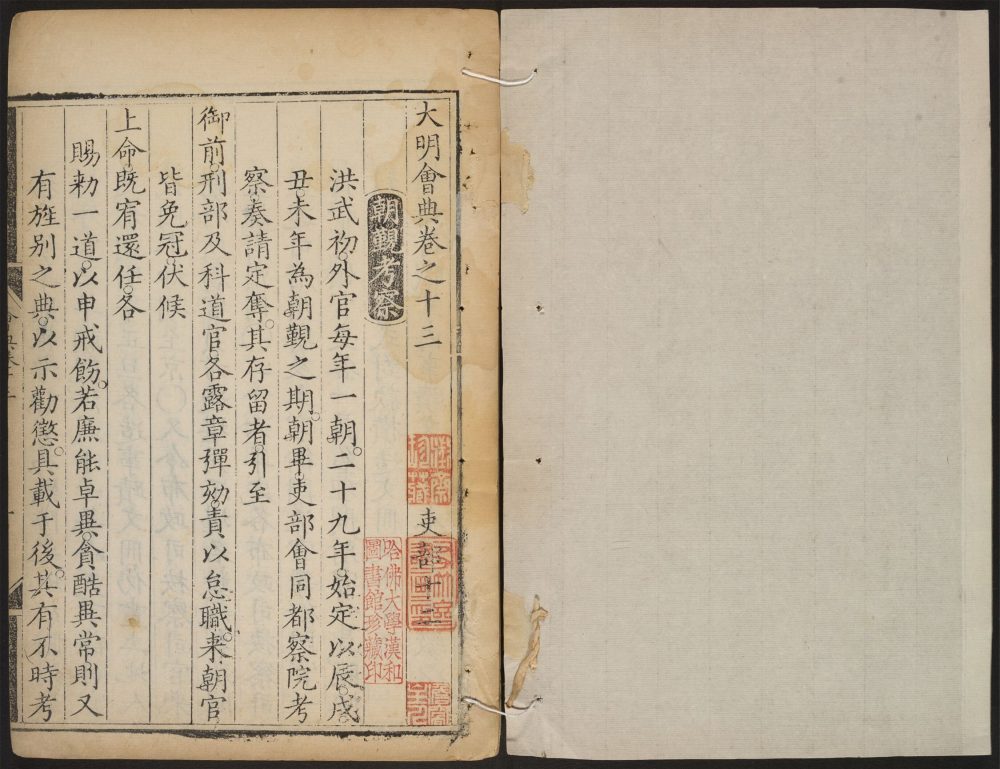 大明會典卷之十三　吏部十二
朝覲考察
洪武初。外官每年一朝。二十九年。始定以辰。戌。
丑。未年為朝覲之期。朝畢。吏部會同都察院考
察。奏請定奪。其存留者。引至
御前。刑部及科道官。各露章彈劾。責以怠職。来朝官
皆免冠伏候
上命。既宥還任。各
賜勅一道。以申戒飭。若廉能卓異。貪酷異常。則又
有旌別之典。以示勸懲。具載于後。其有不時考
哈佛大學漢和
圖書館珍藏印